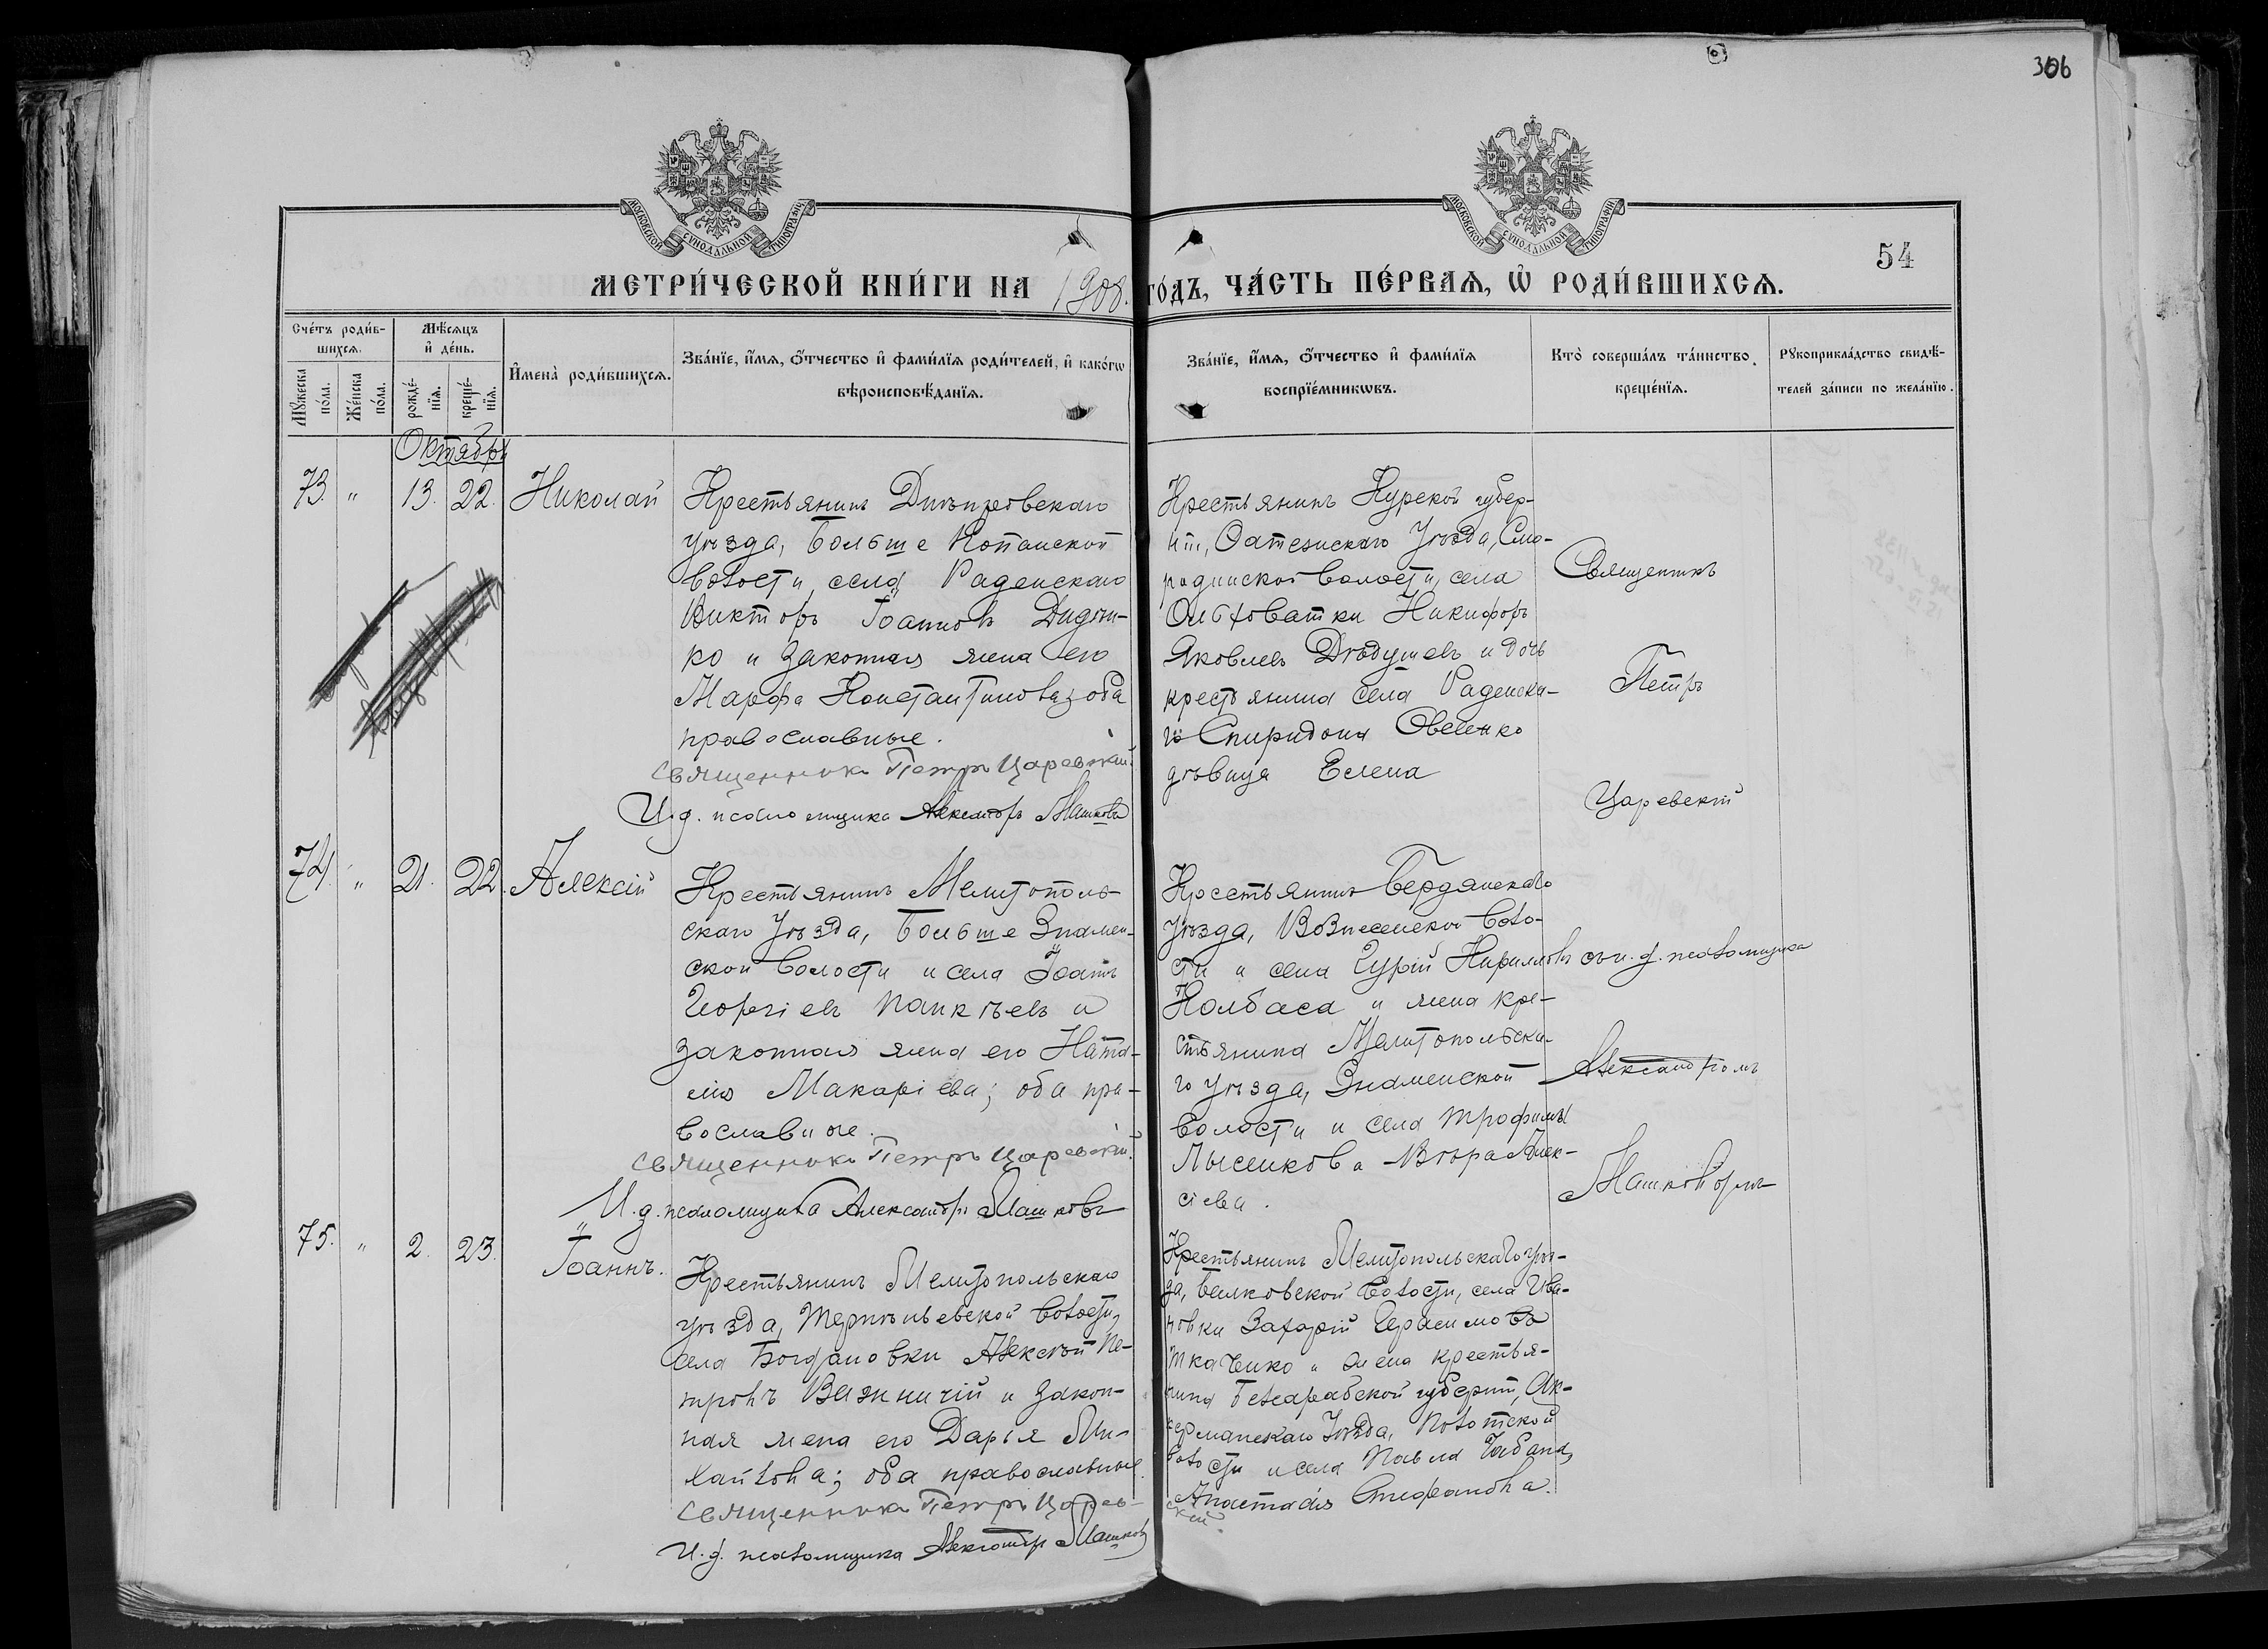 306
МОСКОВСКОЙ СУНОДАЛЬНОЙ ТИПОГРАФІИ
МОСКОВСКОЙ СУНОДАЛЬНОЙ ТИПОГРАФІИ
54
МЕТРИ́ЧЕСКОЙ КНИ́ГИ НА 1908. ГО́ДЪ, ЧА́СТЬ ПЕ́РВАѦ, Ѡ҆ РОДИ́ВШИХСѦ.
Сче́тъ роди́в-
шихсѧ.
Мꙋ́жеска по́ла.
Же́нска по́ла.
Мѣ́сѧцъ
и҆ де́нь.
рожде́-
нїѧ.
креще́-
нїѧ.
И҆мена̀ роди́вшихсѧ.
Зва́нїе, и҆́мѧ, ѻ҆́тчество и҆ фами́лїѧ роди́телей, и҆ како́гѡ
вѣроисповѣ́данїѧ.
Зва́нїе, и҆́мѧ, ѻ҆́тчество и҆ фами́лїѧ
воспрїе́мникѡвъ.
Кто̀ соверша́лъ та́инство
креще́нїѧ.
Рꙋкоприкла́дство свидѣ́-
телей за́писи по жела́нїю.
Октябрь
73. " 13. 22. Николай
Крестьянинъ Днѣпровскаго
уѣзда, Больше Копанской
волости, села Раденскаго
Викторъ Іоанновъ Диден-
ко и законная жена его
Марфа Константинова; оба
православные.
Священникъ Петръ Царевскій.
И. д. псаломщика Александръ Машковъ
Крестьянинъ Курской губер-
ніи, Фатежскаго уѣзда, Смо-
родинской волости, села
Ольховатки Никифоръ
Яковлевъ Дѣдушевъ и дочь
крестьянина села Раденска-
го Спиридона Овсенко
дѣвица Елена
Священникъ
Петръ
Царевскій
74. " 21. 22. Алексій
Крестьянинъ Мелитополь-
скаго уѣзда, Больше Знамен-
ской волости и села Іоаннъ
Георгіевъ Панкѣевъ и
законная жена его Ната-
лія Макаріева; оба пра-
вославные.
Священникъ Петръ Царевскій.
И. д. псаломщика Александръ Машковъ
Крестьянинъ Бердянскаго
уѣзда, Вознесенской воло-
сти и села Гурій Кирилловъ
Колбаса и жена кре-
стьянина Мелитопольска-
го уѣзда, Знаменской
волости и села Трофима
Лысенкова Вѣра Алек-
сіева.
съ и. д. псаломщика
Александромъ
Машковымъ
75. " 2. 23. Іоаннъ.
Крестьянинъ Мелитопольскаго
уѣзда, Терпѣньевской волости,
села Богдановки Алексѣй Пе-
тровъ Важничій и закон-
ная жена его Дарія Ми-
хайлова; оба православные.
Священникъ Петръ Царев-
скій.
И. д. псаломщика Александръ Машковъ
Крестьянинъ Мелитопольскаго уѣз-
да, волости, села Ива-
новки Захарій Герасимовъ
Ткаченко и жена крестья-
нина Бессарабской губерніи, Ак-
керманскаго уѣзда,
волости и села Павла Чабана,
Анастасія Стефанова.